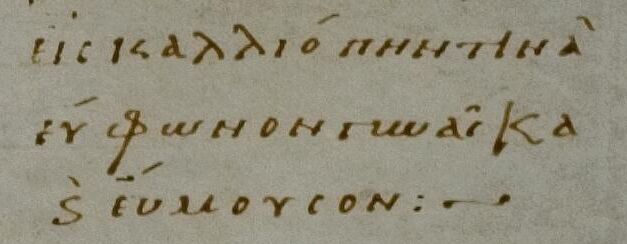 εἰς καλλιόπην τινὰ
εὔφωνον γυναῖκα
ϗ̀ εὔμουσον:—